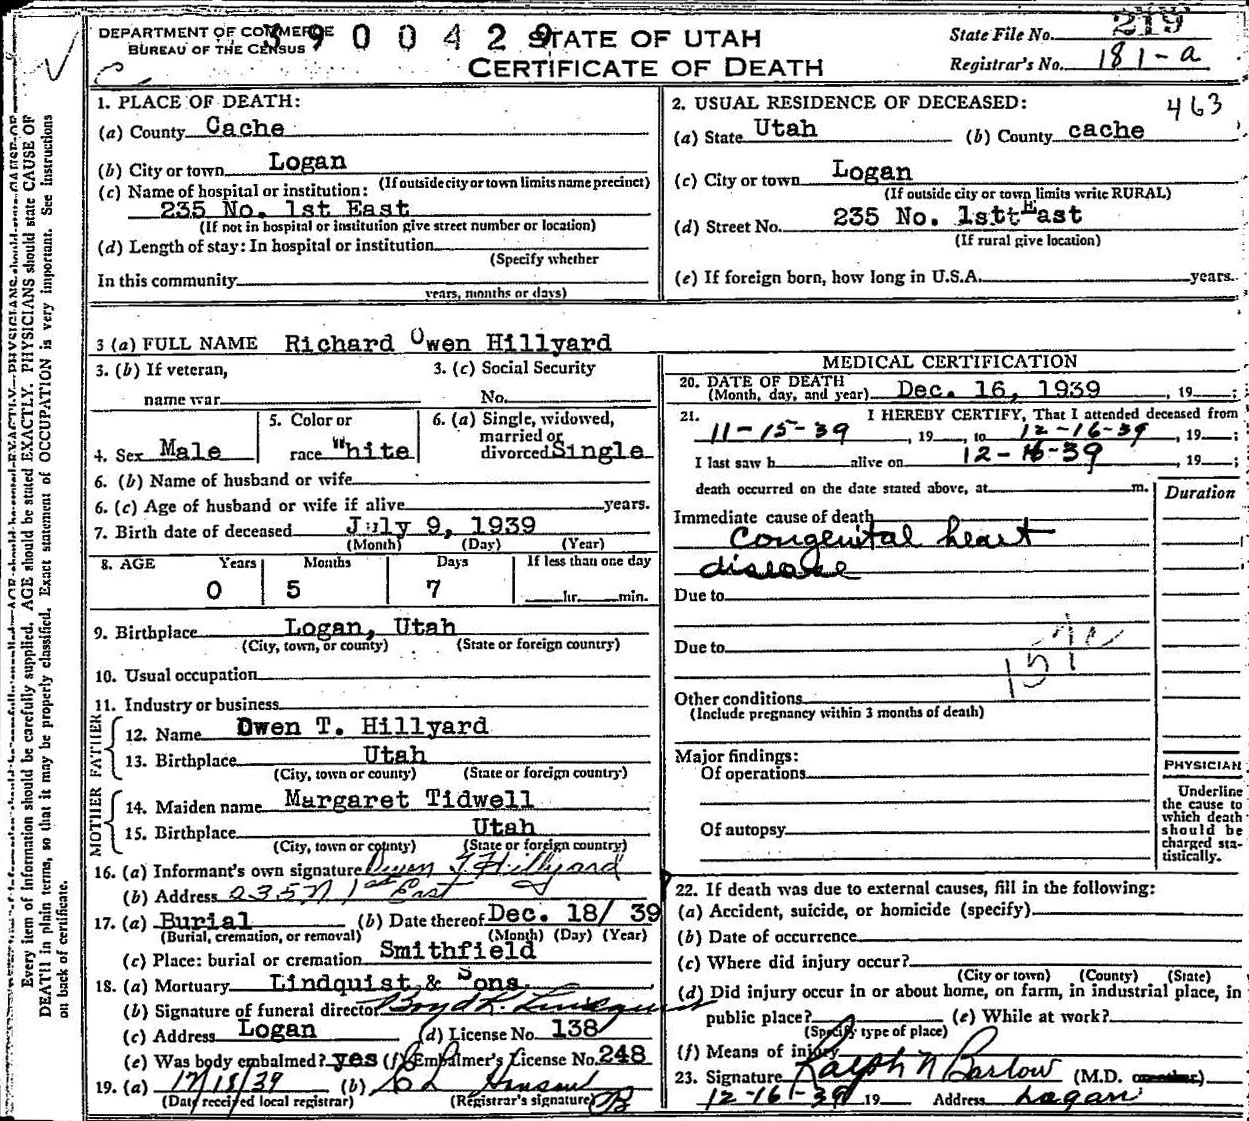 DEPARTMENT OF COMMERCE
BUREAU OF THE CENSUS
3900429
STATE OF UTAH
CERTIFICATE OF DEATH
State File No. 219
Registrar's No. 181-a
463
1. PLACE OF DEATH:
(a) County Cache
(b) City or town Logan
(If outside city or town limits name precinct)
(c) Name of hospital or institution:
235 No. 1st East
(If not in hospital or institution give street number or location)
(d) Length of stay: In hospital or institution
(Specify whether
In this community
years, months or days)
2. USUAL RESIDENCE OF DECEASED:
(a) State Utah (b) County cache
(c) City or town Logan
(If outside city or town limits write RURAL)
(d) Street No. 235 No. 1stt East
(If rural give location)
(e) If foreign born, how long in U.S.A. years.
3 (a) FULL NAME Richard Owen Hillyard
3. (b) If veteran,
name war
3. (c) Social Security
No.
4. Sex Male
5. Color or
race White
6. (a) Single, widowed,
married or
divorced Single
6. (b) Name of husband or wife
6. (c) Age of husband or wife if alive years.
7. Birth date of deceased July 9, 1939
(Month) (Day) (Year)
8. AGE Years Months Days If less than one day
0 5 7 hr. min.
9. Birthplace Logan, Utah
(City, town, or county) (State or foreign country)
10. Usual occupation
11. Industry or business
FATHER
12. Name Owen T. Hillyard
13. Birthplace Utah
(City, town or county) (State or foreign country)
MOTHER
14. Maiden name Margaret Tidwell
15. Birthplace Utah
(City, town or county) (State or foreign country)
16. (a) Informant's own signature Owen T. Hillyard
(b) Address 235 N 1st East
17. (a) Burial (b) Date thereof Dec. 18/ 39
(Burial, cremation, or removal) (Month) (Day) (Year)
(c) Place: burial or cremation Smithfield
18. (a) Mortuary Lindquist & Sons
(b) Signature of funeral director Boyd R. Lindquist
(c) Address Logan (d) License No. 138
(e) Was body embalmed? yes (f) Embalmer's License No. 248
19. (a) 12/18/39 (b)
(Date received local registrar) (Registrar's signature)
MEDICAL CERTIFICATION
20. DATE OF DEATH
(Month, day, and year) Dec. 16, 1939, 19 ;
21. I HEREBY CERTIFY, That I attended deceased from
11-15-39, 19 , to 12-16-39, 19 ;
I last saw h alive on 12-16-39, 19 ;
death occurred on the date stated above, at m.
Duration
Immediate cause of death
Congenital heart
disease
Due to
Due to
Other conditions
(Include pregnancy within 3 months of death)
Major findings:
Of operations
Of autopsy
PHYSICIAN
Underline
the cause to
which death
should be
charged sta-
tistically.
22. If death was due to external causes, fill in the following:
(a) Accident, suicide, or homicide (specify)
(b) Date of occurrence
(c) Where did injury occur?
(City or town) (County) (State)
(d) Did injury occur in or about home, on farm, in industrial place, in
public place? (e) While at work?
(Specify type of place)
(f) Means of injury
23. Signature Ralph N Barlow (M.D.
12-16-39 19 Address Logan
Every item of information should be carefully supplied. AGE should be stated EXACTLY. PHYSICIANS should state CAUSE OF
DEATH in plain terms, so that it may be properly classified. Exact statement of OCCUPATION is very important. See Instructions
on back of certificate.